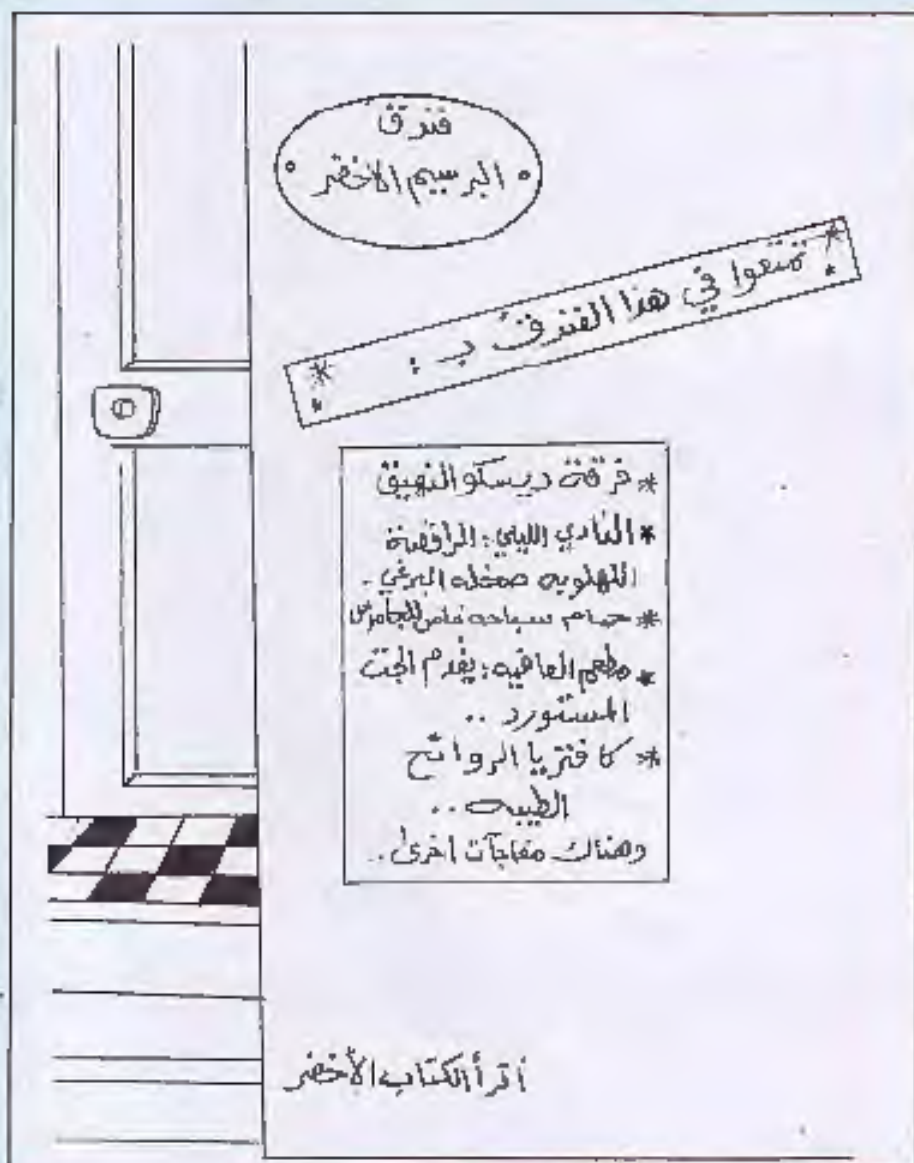 فندق
البرسيم الاخضر
* تمتعوا في هذا الفندق ب : *
* فرقة ديسكو النهيق
* النادي الليلي : الراقصة
اللهلوبه صفحله البرغي .
* حمام سباحه خاص للجاموس
* مطعم العافيه : يقدم الجت
المستورد ..
* كافتريا الروائح
الطيبه ..
وهناك مفاجآت اخرى ..
اقرأ الكتاب الأخضر